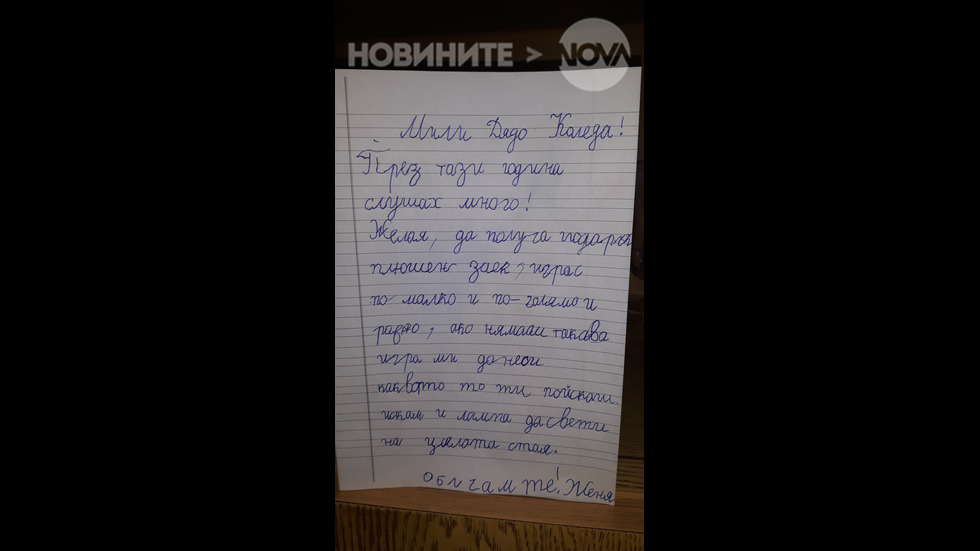 НОВИНИТЕ > NOVA
Мили Дядо Коледа!
През тази година
слушах много!
Желая, да получа подарък
плюшен заек, играс
по-малко и по-голямо и
равно, ако нямаш такава
игра ми донеси
каквото то ти пойскаш.
искам и лампа да свети
на цялата стая.
Обичам те! Женя